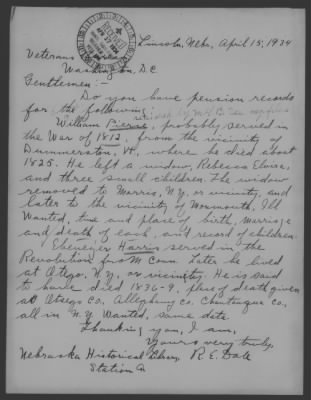 Lincoln, Nebr, April 15, 1934
Veterans
Washington, D.C.
Gentlemen:-
Do you have pension records
for the following:
William Pierce, probably served in
the War of 1812, from the vicinity of
Dummerston, Vt, where he died about
1825. He left a widow, Rebecca Elvira,
and three small children. The widow
removed to Morris, N.Y. or vicinity, and
later to the vicinity of Monmouth, Ill
Wanted, time and place of birth, marriage
and death of each, and record of children.
Ebenezer Harris served in the
Revolution from Conn. Later he lived
at Otego, N.Y. or vicinity. He is said
to have died 1836-9, place of death given
as Otsego Co, Allegheny Co, Chautuqua Co,
all in N.Y. Wanted, same data
Thanking you, I am,
Yours very truly,
Nebraska Historical Library, R.E. Dale
Station A